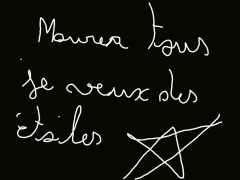 Mourer tous
je veux des
étoiles